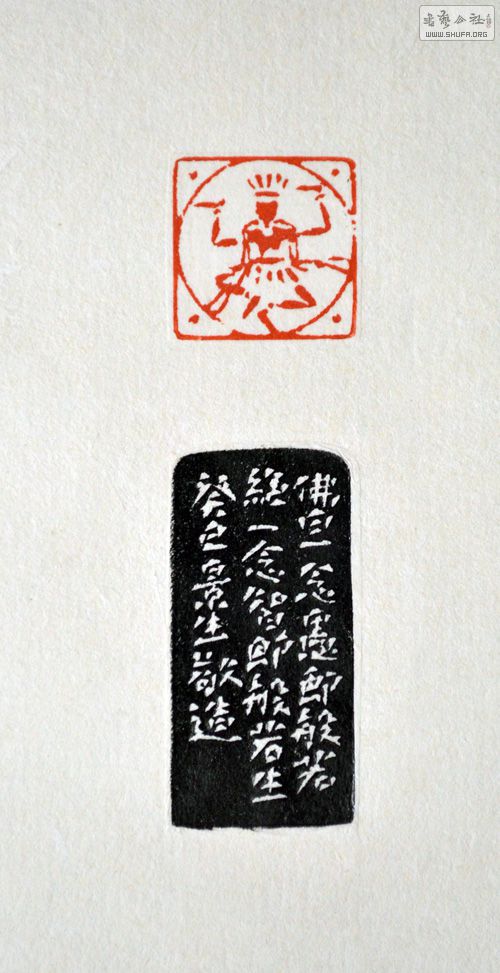 書藝公社
WWW.SHUFA.ORG
佛宣一念愚即般若
絕一念智即般若生
癸巳景生敬造